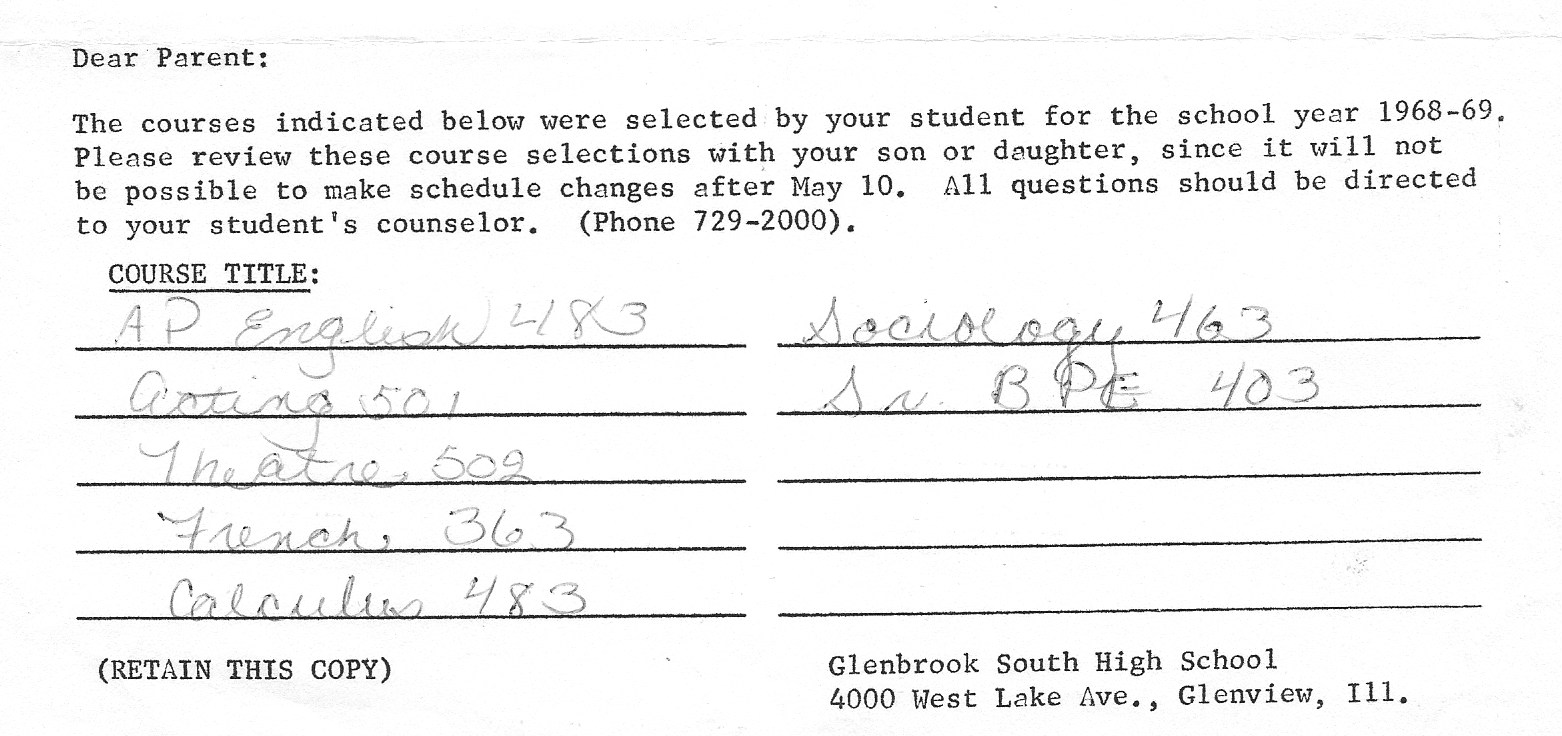 Dear Parent:
The courses indicated below were selected by your student for the school year 1968-69.
Please review these course selections with your son or daughter, since it will not
be possible to make schedule changes after May 10. All questions should be directed
to your student's counselor. (Phone 729-2000).
COURSE TITLE:
AP English 483
Acting 501
Theatre, 502
French, 363
Calculus 483
Sociology 463
Sr. B PE 403
(RETAIN THIS COPY)
Glenbrook South High School
4000 West Lake Ave., Glenview, Ill.